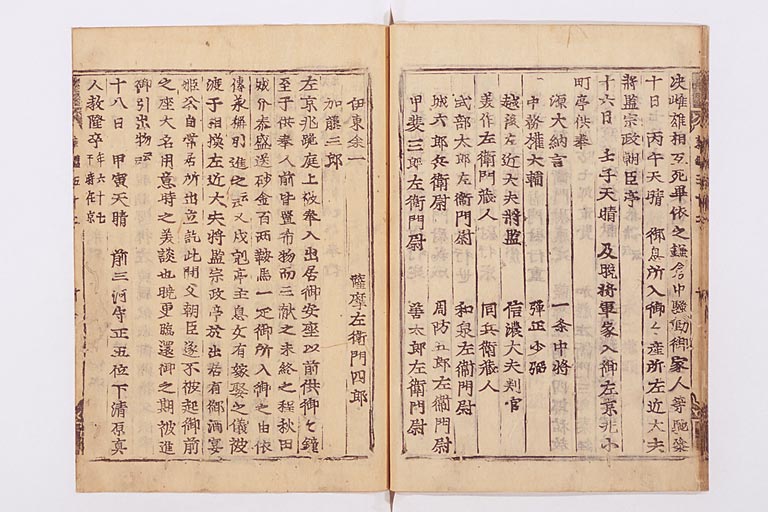 决雌雄相互死畢依之鎌倉中騒動御家人等馳参
十日 丙午天晴 御息所入御御産所左近大夫
将監宗政朝臣亭
十六日 壬子天晴 及晩将軍家入御左京兆小
町亭供奉
源大納言 一条中将
中務権大輔 弾正少弼
越後左近大夫将監 信濃大夫判官
美作左衛門蔵人 同兵衛蔵人
式部太郎左衛門尉 和泉左衛門尉
城六郎兵衛尉 周防五郎左衛門尉
甲斐三郎左衛門尉 太郎左衛門尉
伊東余一 薩摩左衛門四郎
加藤三郎
左京兆跪庭上被奉入出居御安座以前供御
至于供奉人前皆置布物而三献之未終之程秋田
城介泰盛送砂金百両鞍馬一疋御所入御之由依
傳承称別進之 又戌剋亭主息女有嫁娶之儀被
渡于相模左近大夫将監宗政亭於出居有御酒宴
姫公自常居所出立訖此間父朝臣遂不被起御前
之座大名用意時之美談也晩更臨還御之期被進
御引出物
十八日 甲寅天晴 前三河守正五位下清原真
人教隆卒 年六十七 于時在京